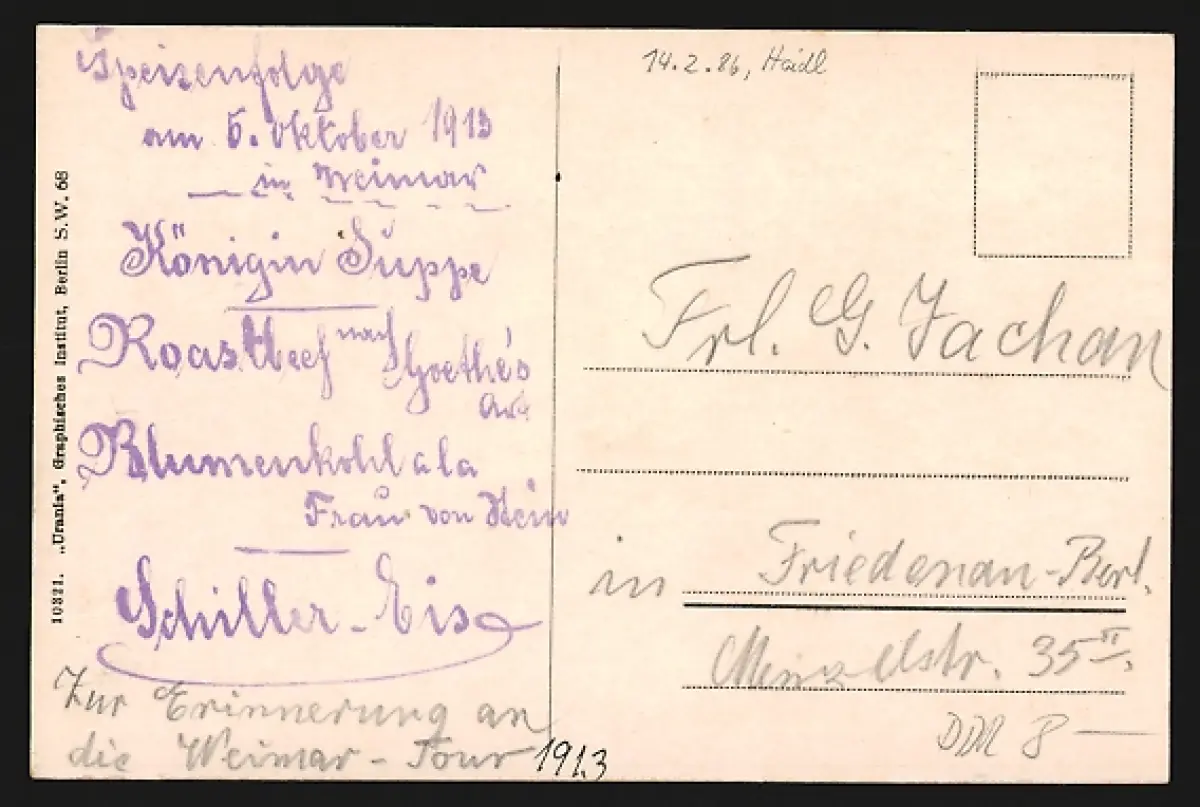 Speisenfolge
am 5. Oktober 1913
in Weimar
Königin Suppe
Roastbeef nach Goethe's
Art
Blumenkohl a la
Frau von Stein
Schiller-Eis
Zur Erinnerung an
die Weimar-Tour 1913
10321. „Urania", Graphisches Institut, Berlin S.W. 68
14.2.86, Haidl
Frl. G. Jachan
in Friedenau-Berl.
Menzelstr. 35 II.
DM 8 —